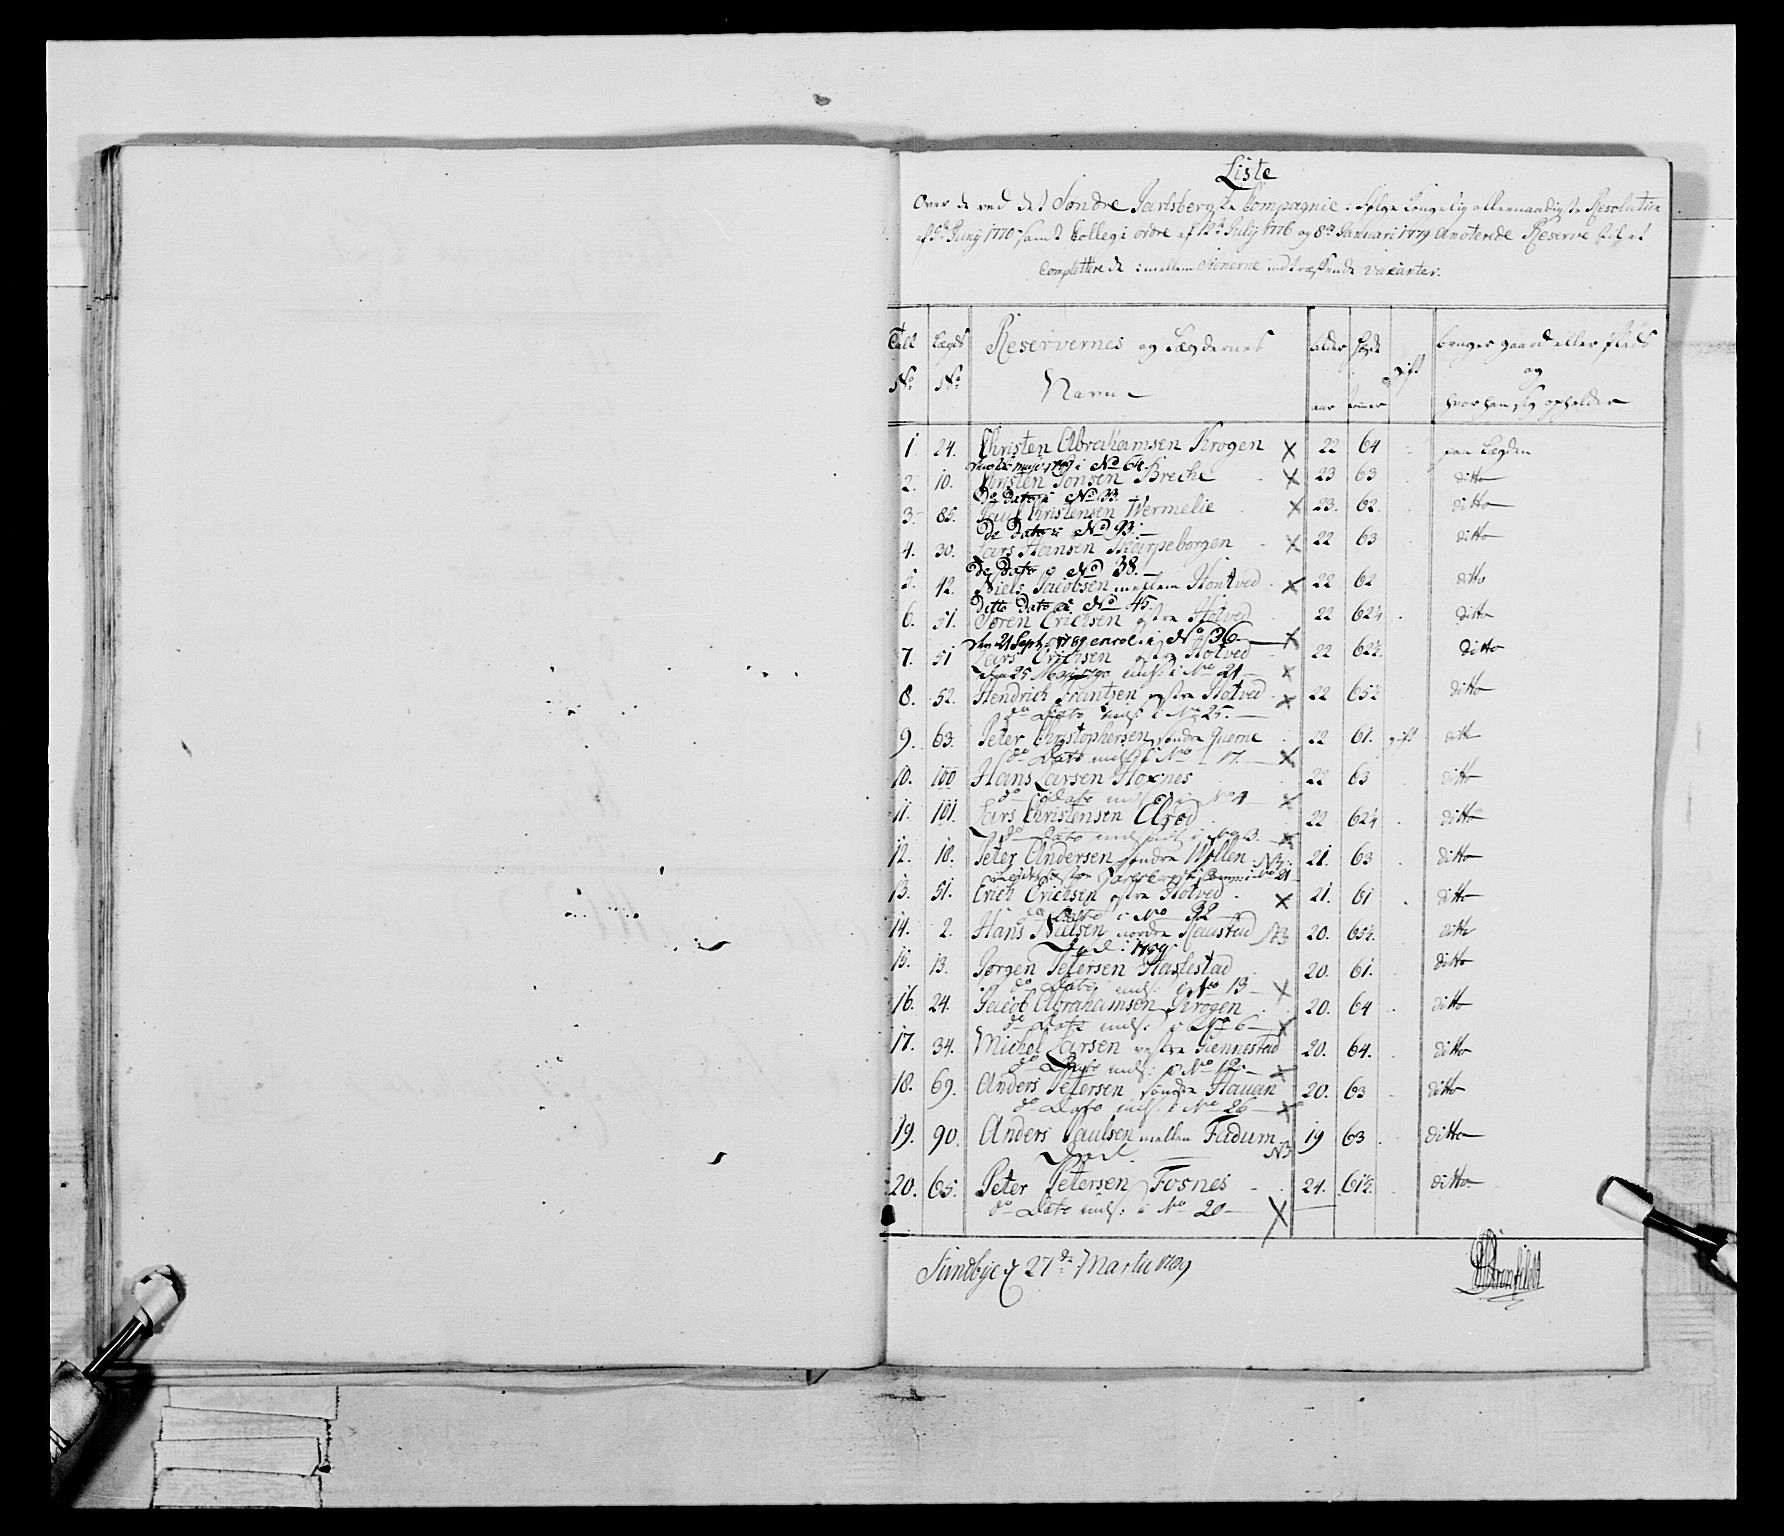 Liste
Over de ved det Søndre Jarlsbergske Compagnie i følge Kongelig allernaadigste Resolution
af Junij 1770 samt Collegi ordre af 12te Julij 1776 og 8de Januari 1779 Anoterede Reserve til at
Complettere de imellem Siunerne indtræffende vacanter.
Tall No Lægds No Reservernes og Lægdernes Navne alder aar høyde tommer gift bruger gaard eller plads og hvor han sig opholder
1. 24. Christen Abrahamsen Krogen X 22 64 paa Lægden
i No 64.
2. 10. Christen Jonsen Breche X 23 63 ditto
Do Dato i No 33.
3. 85. Paul Christensen Wermelie X 23. 62. ditto
Do Dato i No 93.
4. 30. Lars Hansen Skarpeborgen X 22 63 ditto
Do Dato i No 38.
5. 42. Niels Jacobsen mellem Hontved X 22 62 ditto
Ditto Dato i No 45.
6. 51. Søren Erichsen østre Hotved 22 62¼ ditto
den 21 Sept. 1789 enrol. i No 36 X
7. 51 Lars Erichsen østre Hotved 22 62½ ditto
den 25 Maj 1790 inds: i No 21 X
8. 52. Hendrich Frantzen østre Hotved X 22 65½ ditto
do Dato inds: i No 25.
9. 63. Peter Christophersen søndre Querne 22 61. gift ditto
do Dato inds: i No 17. X
10. 100 Hans Larsen Hoxnes 22 63 ditto
do Dato inds: i No 4 X
11. 101. Lars Christensen Elrød 22 62¼ ditto
do Dato X
12. 18. Peter Andersen søndre Wollen 21. 63 ditto
Jarlsbergske Comp: i No 21
13. 51. Erich Erichsen østre Hotved X 21. 61 ditto
do Dato i No 32
14. 2. Hans Nielsen nordre Raastad NB 20. 65½. ditto
Død i 1789
15. 13. Jørgen Petersen Haslestad 20. 61. ditto
do Dato inds: i No 13 X
16. 24. Jacob Abrahamsen Krogen 20. 64 ditto
do Dato inds: i No 6 X
17. 34. Michel Larsen vestre Giennestad 20. 64. ditto
do Dato inds: i No 12. X
18. 69. Anders Petersen søndre Hauan 20. 63 ditto
do Dato inds: i No 26 X
19. 90. Anders Paulsen mellem Fadum 19 63 ditto
Død. NB
20. 65. Peter Petersen Fosnes 24. 61½. ditto
do Dato inds: i No 20 X
Sundbye d 27de Martii 1789